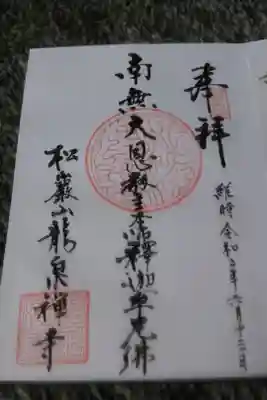 奉拝
維時令和2年六月十二日
南無大恩教主本師釋迦牟尼佛
松巖山龍泉禅寺